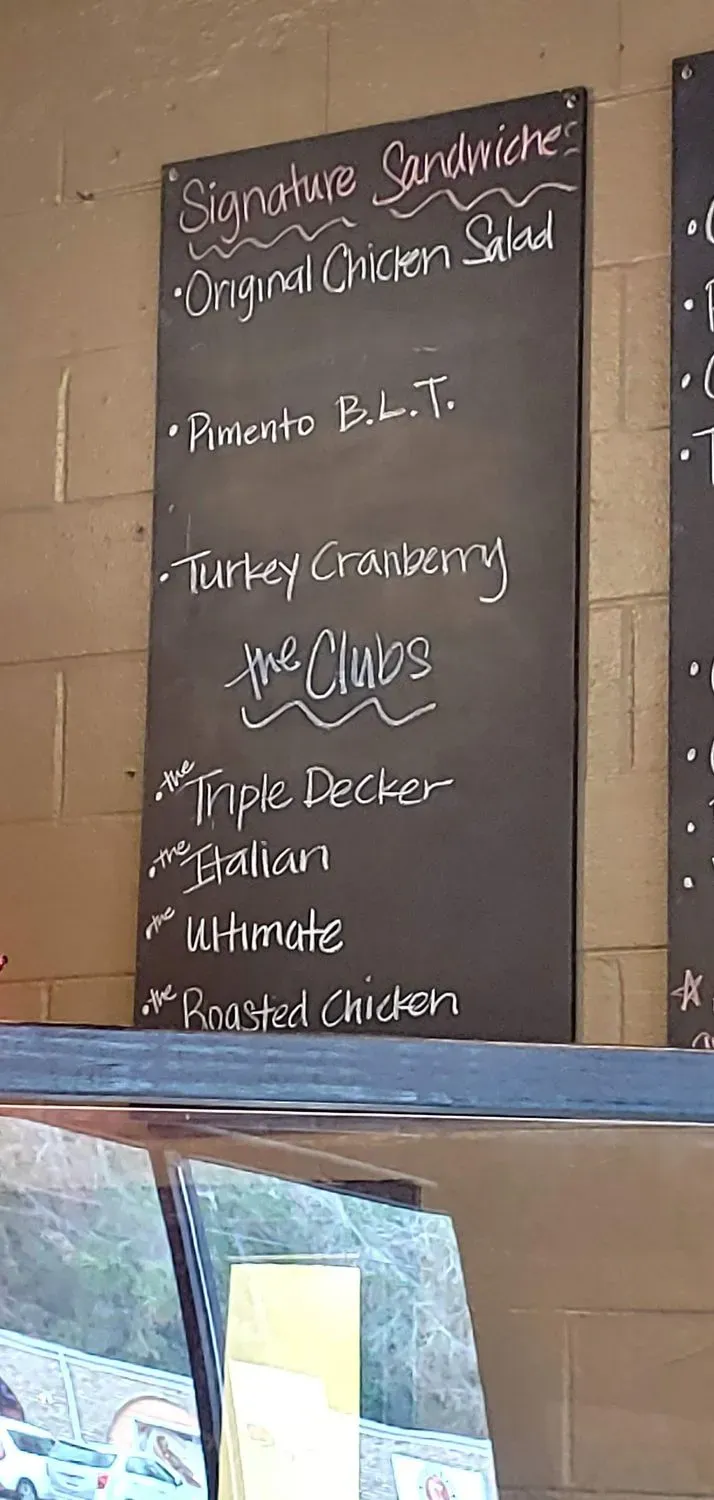 Signature Sandwiches
• Original Chicken Salad
• Pimento B.L.T.
• Turkey Cranberry
the Clubs
• the Triple Decker
• the Italian
• the Ultimate
• the Roasted Chicken